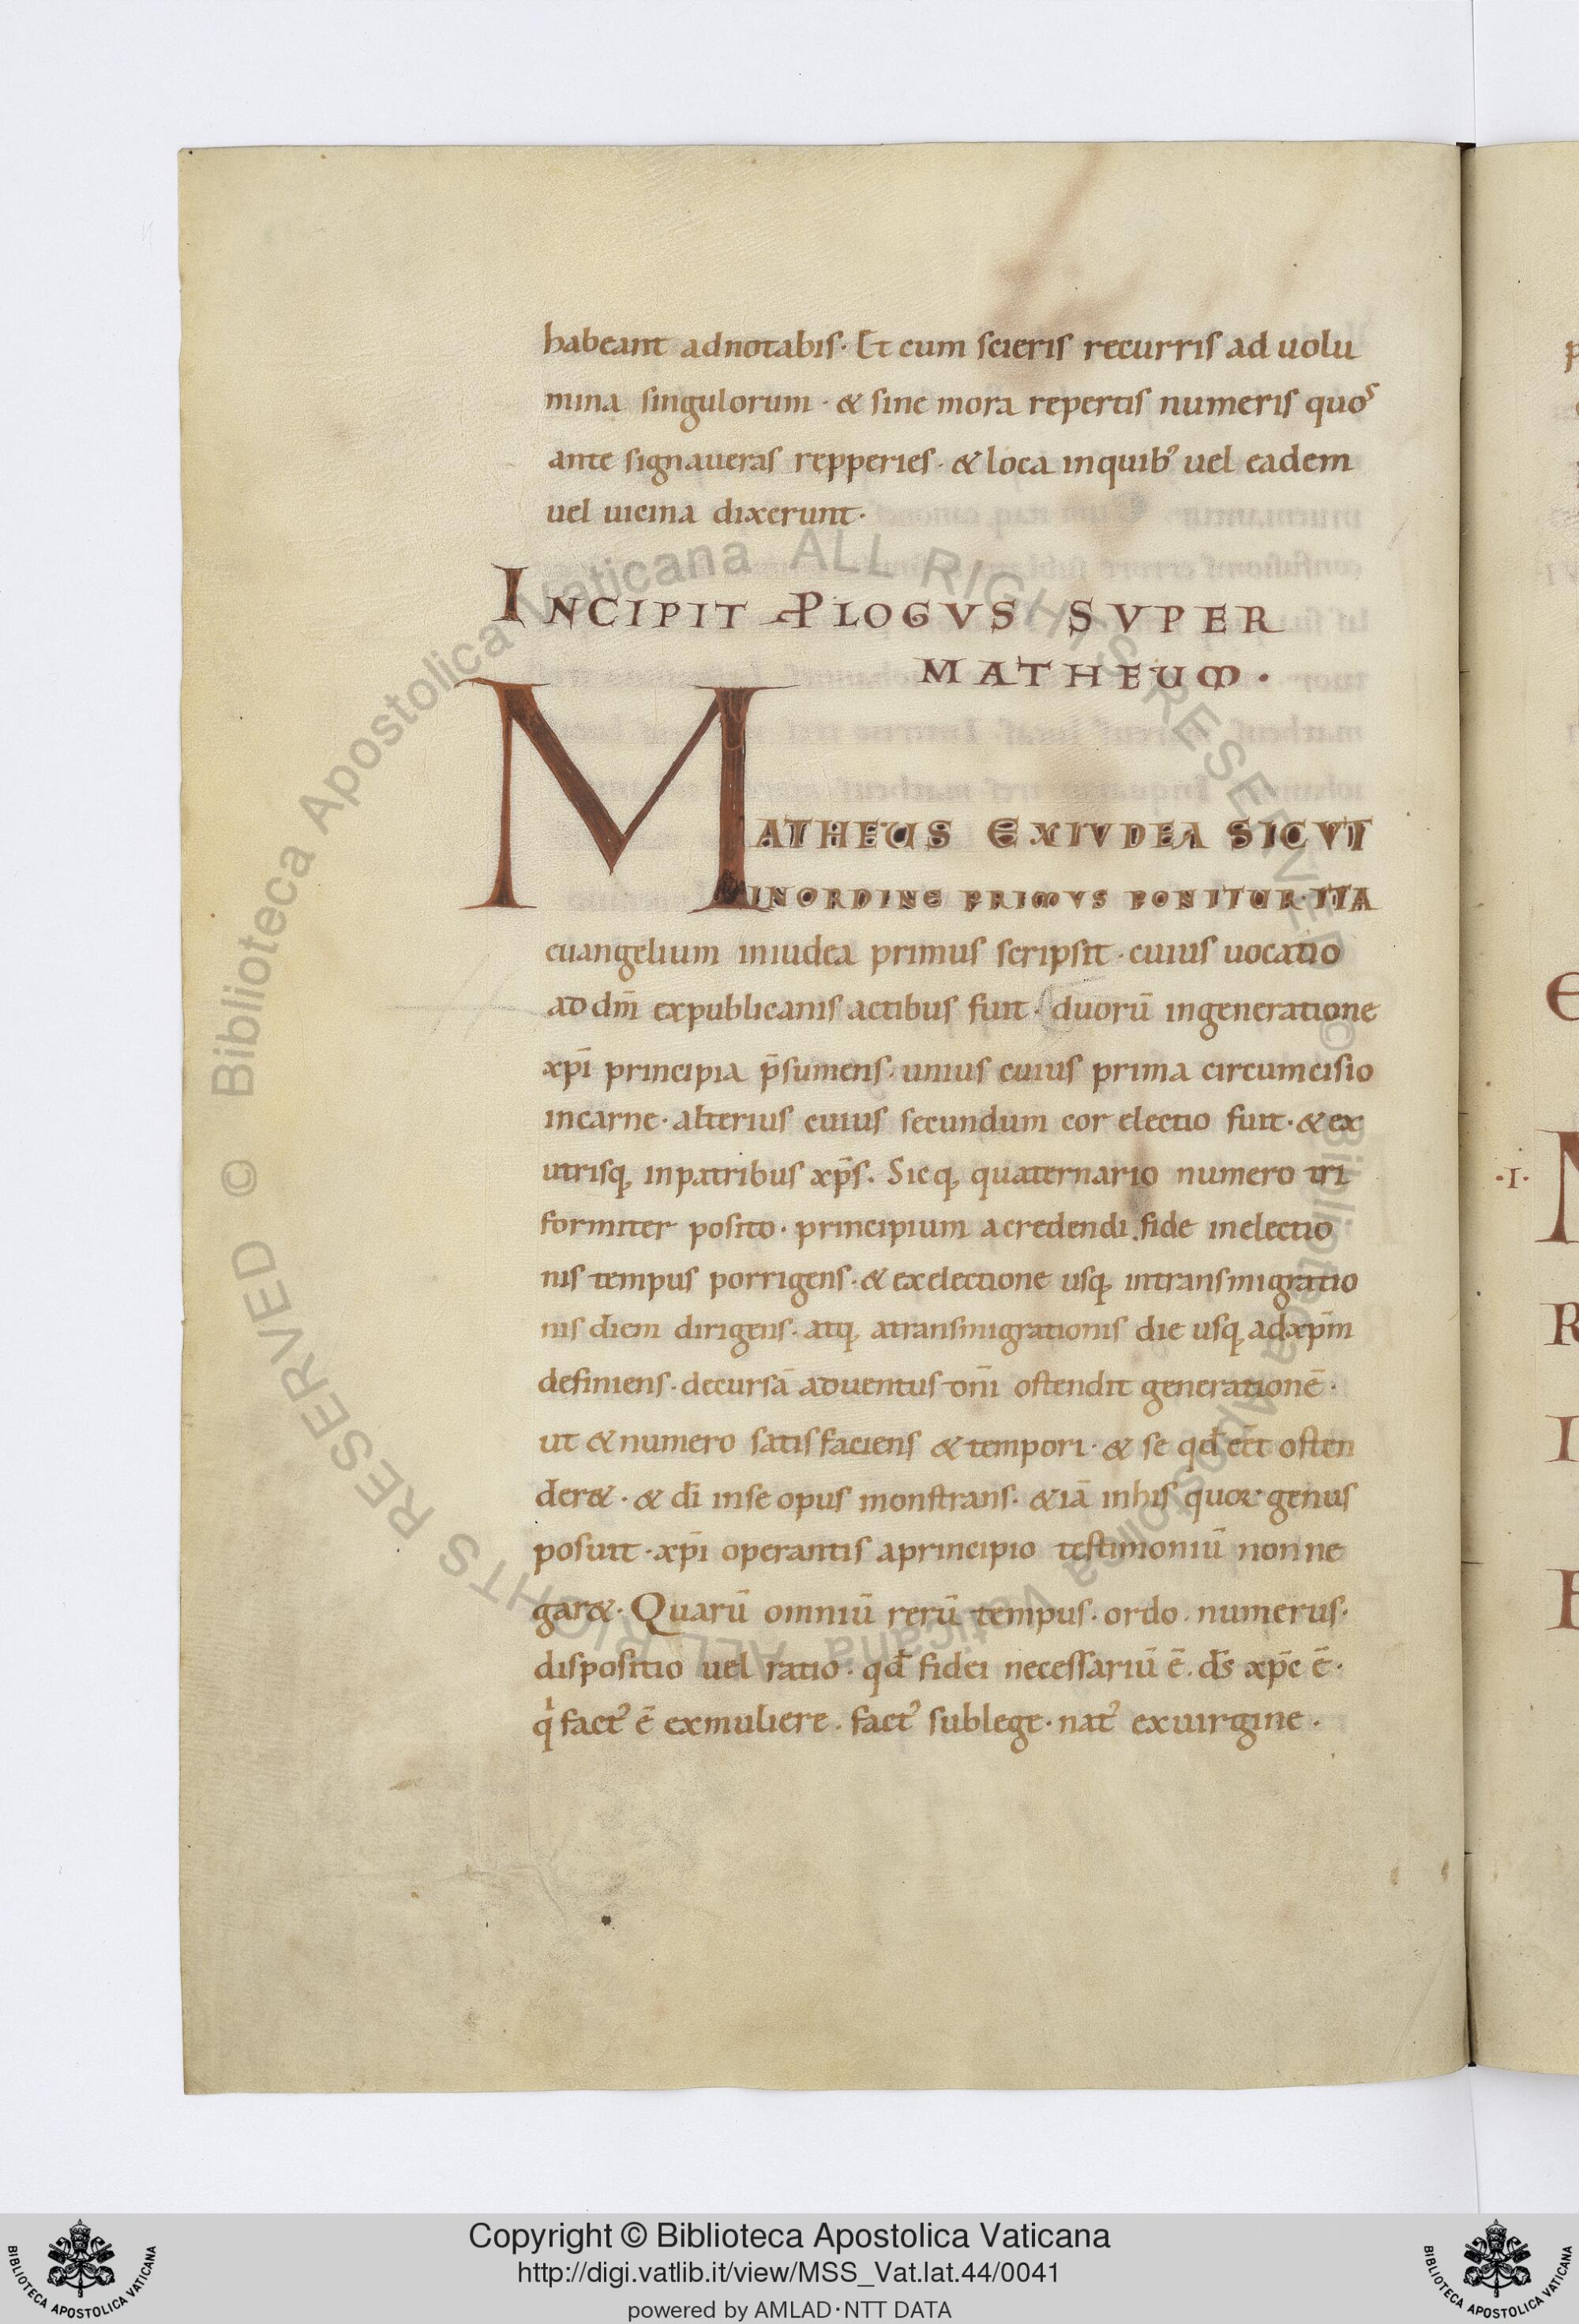 habeant adnotabis· Et cum scieris recurris ad uolu
mina singulorum · & sine mora repertis numeris quos
ante signaueras repperies· & loca inquib᾽ uel eadem
uel uicina dixerunt·
INCIPIT PLOGVS SVPER
MATHEUM·
MATHEUS EXIVDEA SICVT
INORDINE PRIMVS PONITUR·ITA
euangelium iniudea primus scripsit · cuius uocatio
ad dm̄ expublicanis actibus fuit· duorū ingeneratione
xp̄i principia p̄sumens· unius cuius prima circumcisio
incarne· alterius cuius secundum cor electio fuit· & ex
utrisq, inpatribus xp̄s. Sicq, quaternario numero tri
formiter posito· principium acredendi fide inelectio
nis tempus porrigens· & exelectione usq, intransmigratio
nis diem dirigens· atq, atransmigrationis die usq, adxp̄m
definiens· decursā aduentus dn̄i ostendit generationē·
ut & numero satisfaciens & tempori· & se qd̄ eēt osten
der&· & dī inse opus monstrans· &iā inhis quoꝝ genus
posuit· xp̄i operantis aprincipio testimoniū non ne
gar&· Quarū omniū rerū tempus· ordo· numerus·
dispositio uel ratio· qd̄ fidei necessariū ē· d̄s xp̄c ē·
qⁱ fact᾽ ē exmuliere· fact᾽ sublege· nat᾽ exuirgine·
·I·
Copyright © Biblioteca Apostolica Vaticana
http://digi.vatlib.it/view/MSS_Vat.lat.44/0041
powered by AMLAD·NTT DATA
BIBLIOTECA APOSTOLICA VATICANA
BIBLIOTECA APOSTOLICA VATICANA
© Biblioteca Apostolica Vaticana ALL RIGHTS RESERVED
© Biblioteca Apostolica Vaticana ALL RIGHTS RESERVED